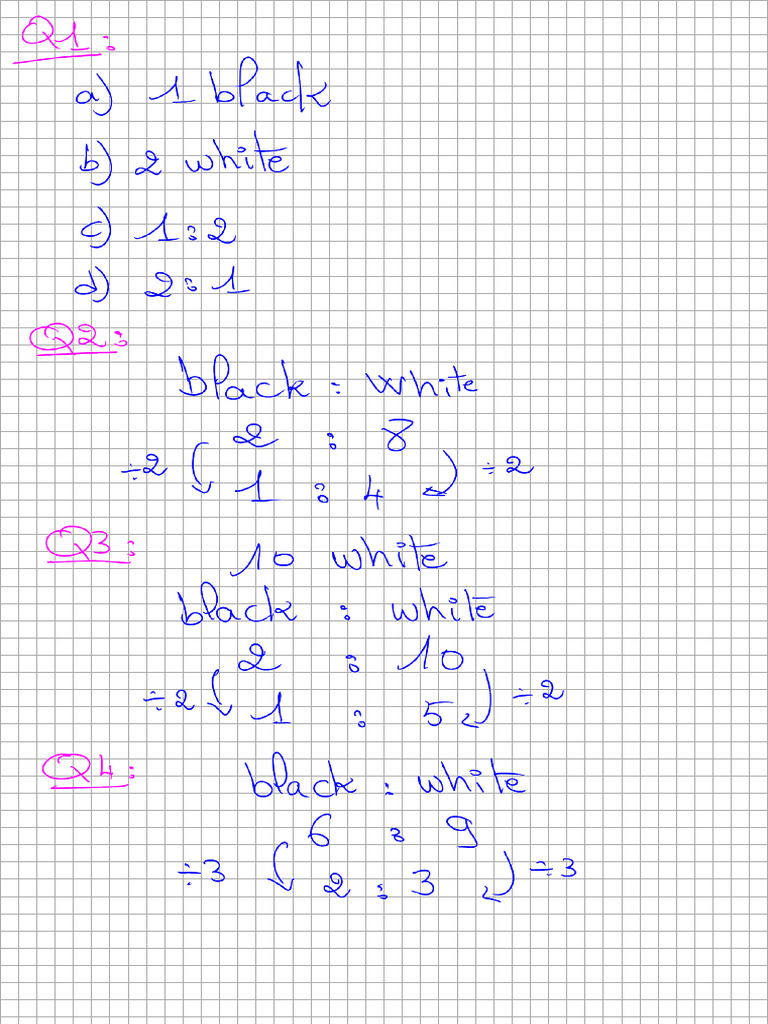 Q1:
a) 1 black
b) 2 white
c) 1:2
d) 2:1
Q2:
black : white
2 : 8
÷2 1 : 4 ÷2
Q3: 10 white
black : white
2 : 10
÷2 1 : 5 ÷2
Q4: black : white
6 : 9
÷3 2 : 3 ÷3